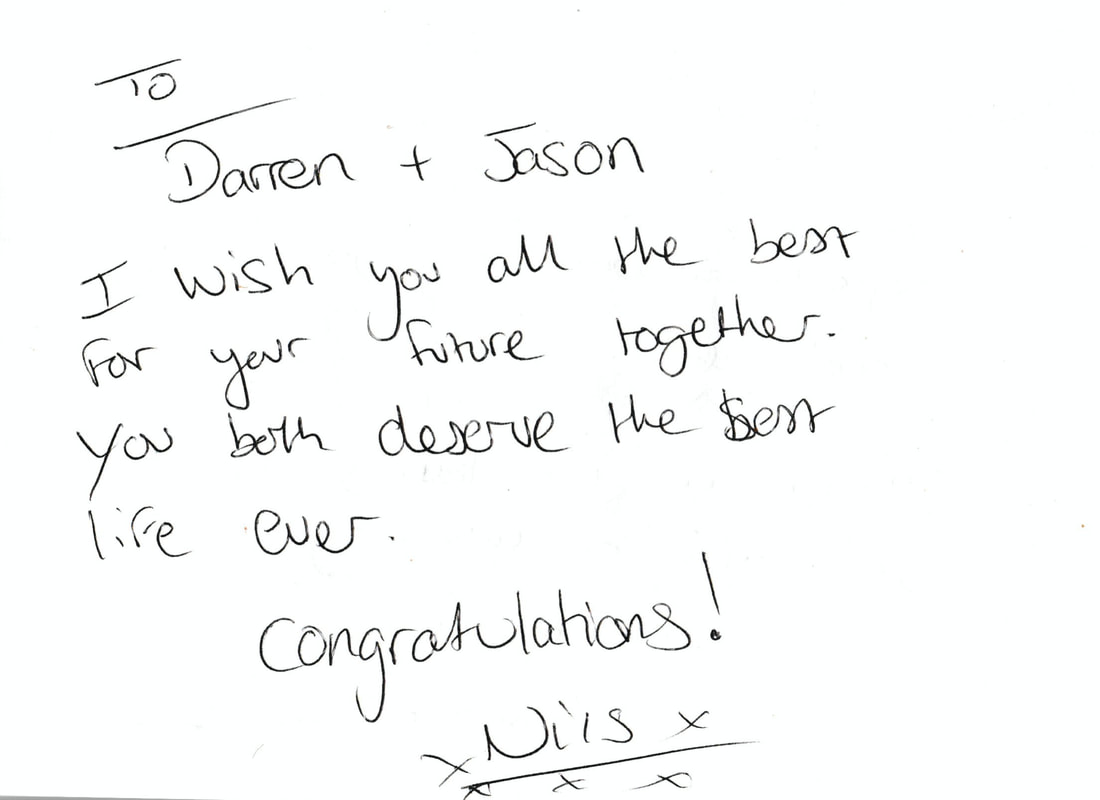 To
Darren + Jason
I wish you all the best
for your future together.
You both deserve the best
life ever.
Congratulations!
x Nils x
x x x